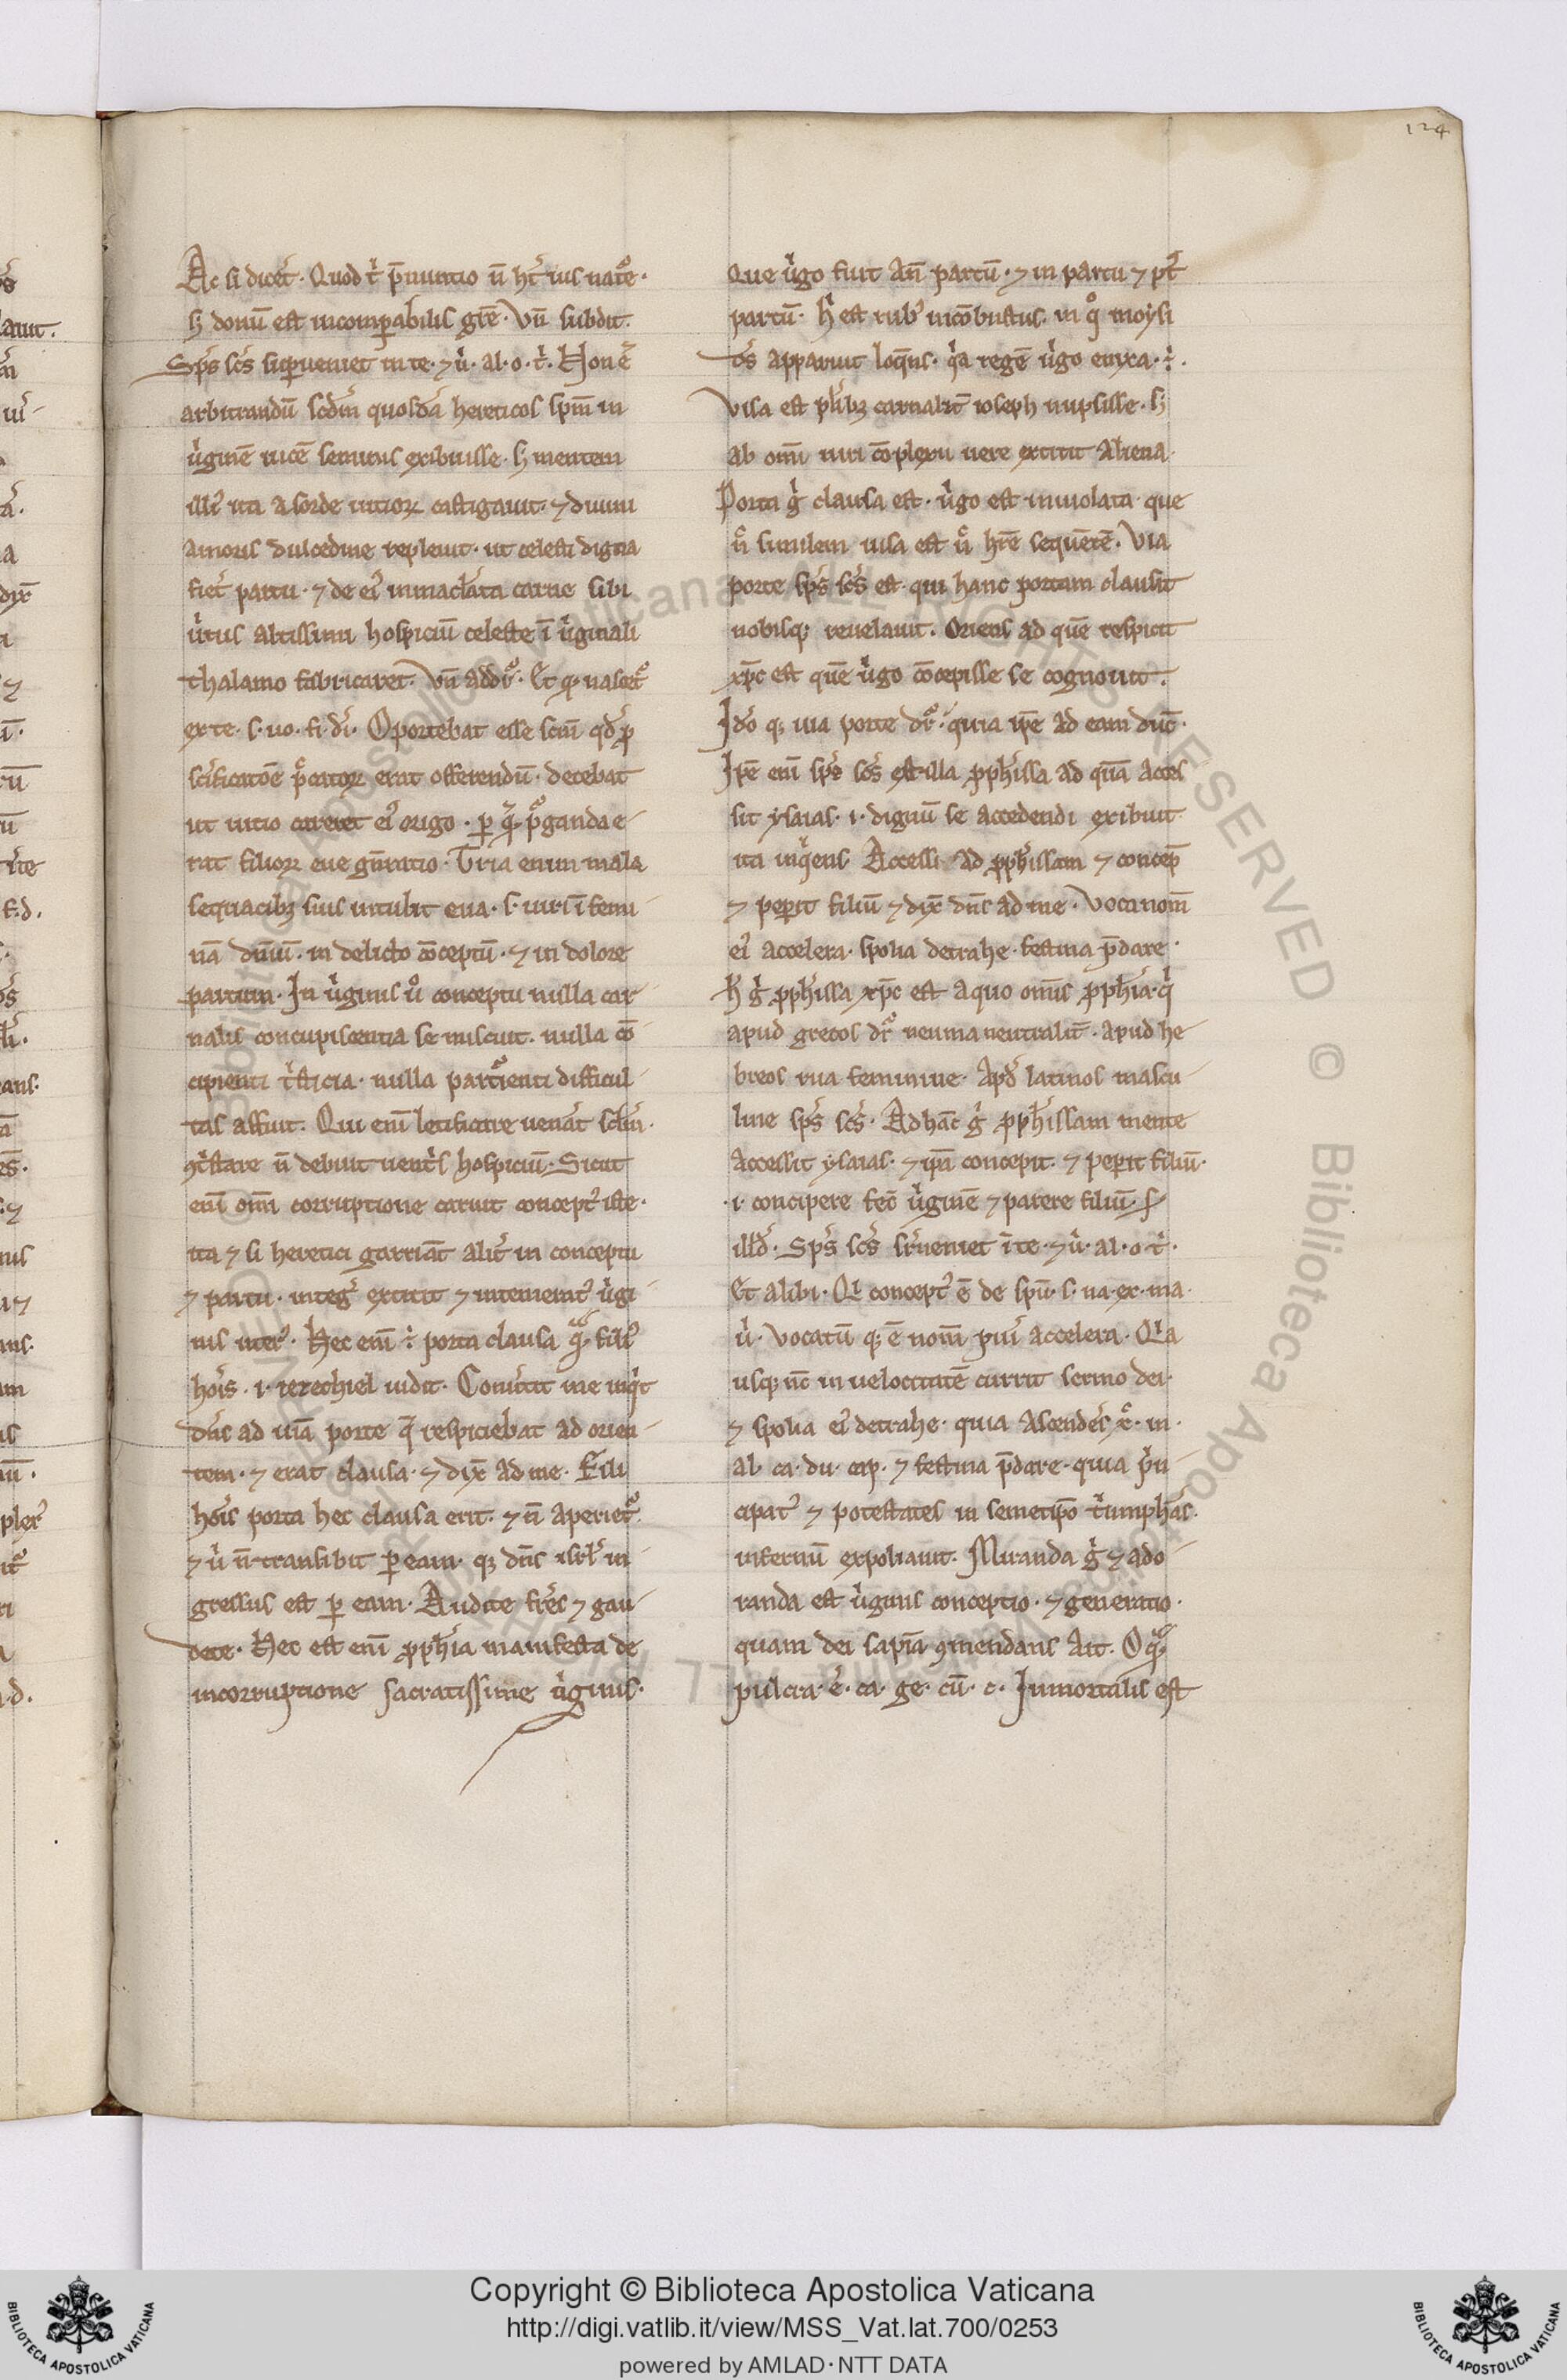 124
Ac si dicet̄. Quod t̾ p̄nuntio n̄ ht̄ ius nat̾e.
sꝫ donū est incomꝑabilis grē. Vn̄ subdit.
Sp̄s sc̄s suꝑueniet in te. ⁊ u̾. al. o. t̾. Non ē
arbitrandū sc̄dm quosdā hereticos sp̄m in
u̾ginē uicē seminis exibuisse. sꝫ mentem
illi᷒ ita a sorde uitioꝝ castigauit. ⁊ diuini
amoris dulcedine repleuit. ut celesti digna
fiet̄ partu. ⁊ de ei᷒ inmacl̄ata carne sibi
u̾tus altissimi hospiciū celeste ī u̾ginali
thalamo fabricaret. Vn̄ addit̾. Et qꝫ nascet̾
ex te. s. uo. fi. di̾. Oportebat esse sc̄m qd̾ ꝓ
sc̄ificatōe pc̄catoꝝ erat offerendū. decebat
ut uitio careret ei᷒ origo. ꝑ quā purganda e-
rat filioꝝ eue gn̄ratio. Tria enim mala
sequacibꝫ suis intulit eua. s. uiri ī femi-
nā dn̄iū. in delicto c̄oceptū. ⁊ in dolore
partum. In u̾ginis u̾o conceptu nulla car-
nalis concupiscentia se miscuit. nulla cō-
cipienti t̾sticia. nulla part̾ienti difficul-
tas affuit. Qui enī letificare uenāt sc̄lm.
ꝯt̾stare n̄ debuit uent̾s hospiciū. Sicut
enī om̄i corruptione caruit concept᷒ iste.
ita ⁊ si heretici garriāt alit̾ in conceptu
⁊ partu. integ̾ extitit ⁊ intemerat᷒ u̾gi-
nis uter᷒. Hec enī ÷ porta clausa quā fili᷒
hōis. i. iezechiel uidit. Conu̾tit me inq̾t
dn̄s ad uiā porte q̄ respiciebat ad orien-
tem. ⁊ erat clausa. ⁊ dix̄ ad me. Fili
hōis porta hec clausa erit. ⁊ n̄ aperiet̾.
⁊ u̾ n̄ transibit ꝑ eam. qꝫ dn̄s isrl̄ in-
gressus est ꝑ eam. Audite fr̄es ⁊ gau-
dete. Hec est enī ꝓph̄ia manifesta de
incorruptione sacratissime u̾ginis.
Que u̾go fuit an̄ partū. ⁊ in partu ⁊ pt̾
partū. H̾ est rub᷒ incōbustus. in qͦ moysi
ds̄ apparuit loq̄ns. q̾a regē u̾go enixa. ÷.
Visa est pl̾ibꝫ carnalit̄ ioseph nupsisse. sꝫ
ab om̄i uiri cōplexu uere extitit aliena.
Porta g̾ clausa est. u̾go est inuiolata. que
n̾ similem uisa est n̾ hr̄e sequēte. Via
porte sp̄s sc̄s est. qui hanc portam clausit
nobisqꝫ reuelauit. Oriens ad quē respicit
xp̄c est quē u̾go cōcepisse se cognouit.
Id̾o qꝫ uia porte dr̾. quia ip̄e ad eam duc̄.
Ip̄e enī sp̄s sc̄s est illa ꝓph̄issa ad quā acces
sit ysaias. i. dignū se accedendi exibuit
ita inq̾ens Accessi ad ꝓph̄issam ⁊ concep̄
⁊ peꝑit filiū ⁊ dix̄ dn̄s ad me. Voca nom̄
ei᷒ accelera. spolia detrahe. festina p̄dare.
H̾ g̾ ꝓph̄issa xp̄c est a quo om̄is ꝓph̄ia. q̾
apud grecos dr̾ neuma neutralit̄. apud he
breos rua feminine. Apd̾ latinos mascu-
line sp̄s sc̄s. Ad hāc g̾ ꝓph̄issam mente
accessit ysaias. ⁊ ip̄a concepit. ⁊ peꝑit filiū.
i. concipere fec̄ u̾ginē ⁊ parere filiū. s̾
illd̾. Sp̄s sc̄s sr̾ueniet ī te. ⁊ u̾. al. o. t̾.
Et alibi. Qi concept᷒ ē de spū. s. na. ex. ma.
u̾. Vocatū qꝫ ē nom̄ pu̾i accelera. Qia
usqꝫ nc̄ in uelocitatē currit sermo dei.
⁊ spolia ei᷒ detrahe. quia ascendēs x̾. in.
al. ca. du. cap. ⁊ festina p̄dare. quia p̾n-
cipat᷒ ⁊ potestates in semetip̄o t̾umphās.
infernū expoliauit. Miranda g̾ ⁊ ado-
randa est u̾ginis conceptio. ⁊ generatio.
quam dei sapīa ꝯmendans ait. O quā
pulcra. ē. ca. ge. cū. c. Inmortalis est
Copyright © Biblioteca Apostolica Vaticana
http://digi.vatlib.it/view/MSS_Vat.lat.700/0253
powered by AMLAD·NTT DATA
BIBLIOTECA APOSTOLICA VATICANA
BIBLIOTECA APOSTOLICA VATICANA